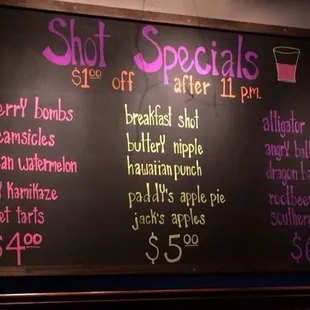 Shot Specials
$1.00 off after 11 p.m.
erry bombs
eamsicles
an watermelon
y kamikaze
et tarts
$4.00
breakfast shot
buttery nipple
hawaiian punch
paddy's apple pie
jack's apples
$5.00
alligator
angry ball
dragon
rootbeer
southern
$6